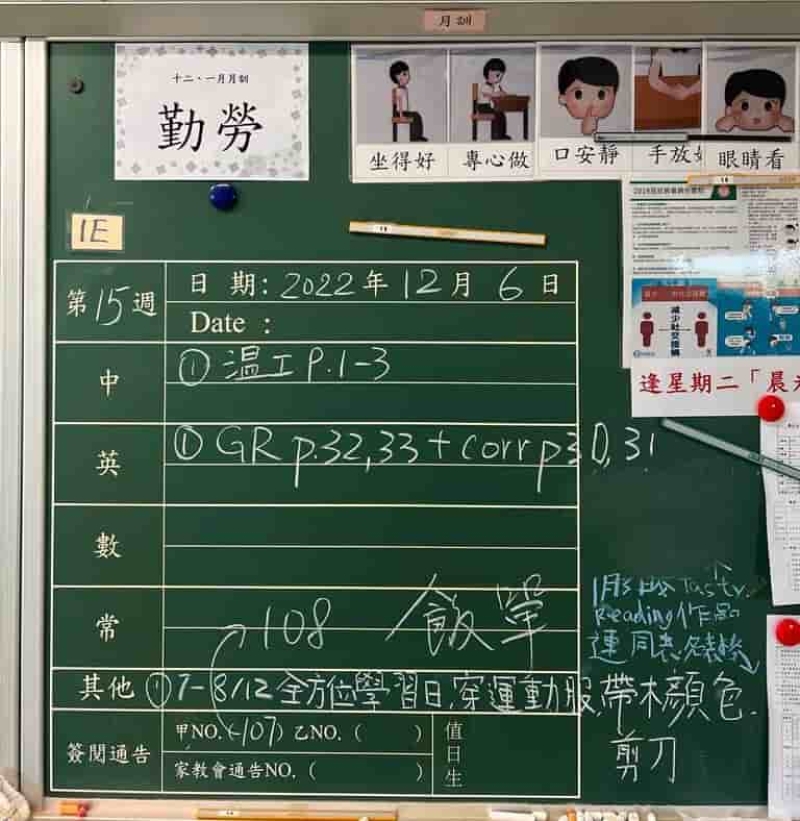 月訓
十二、一月月訓
勤勞
坐得好 專心做 口安靜 手放好 眼睛看
1E
減少社交接觸
逢星期二「晨光
第15週
日期: 2022年12月6日
Date :
中
① 温工 P.1-3
英
① GR p.32,33 + corr p30,31
數
常
108 飯單
Tasty
Reading作品
連同表
其他 ① 7-8/12 全方位學習日,穿運動服,帶木顏色.
剪刀
簽閱通告
甲NO.(107) 乙NO. ( )
家教會通告NO. ( )
值日生